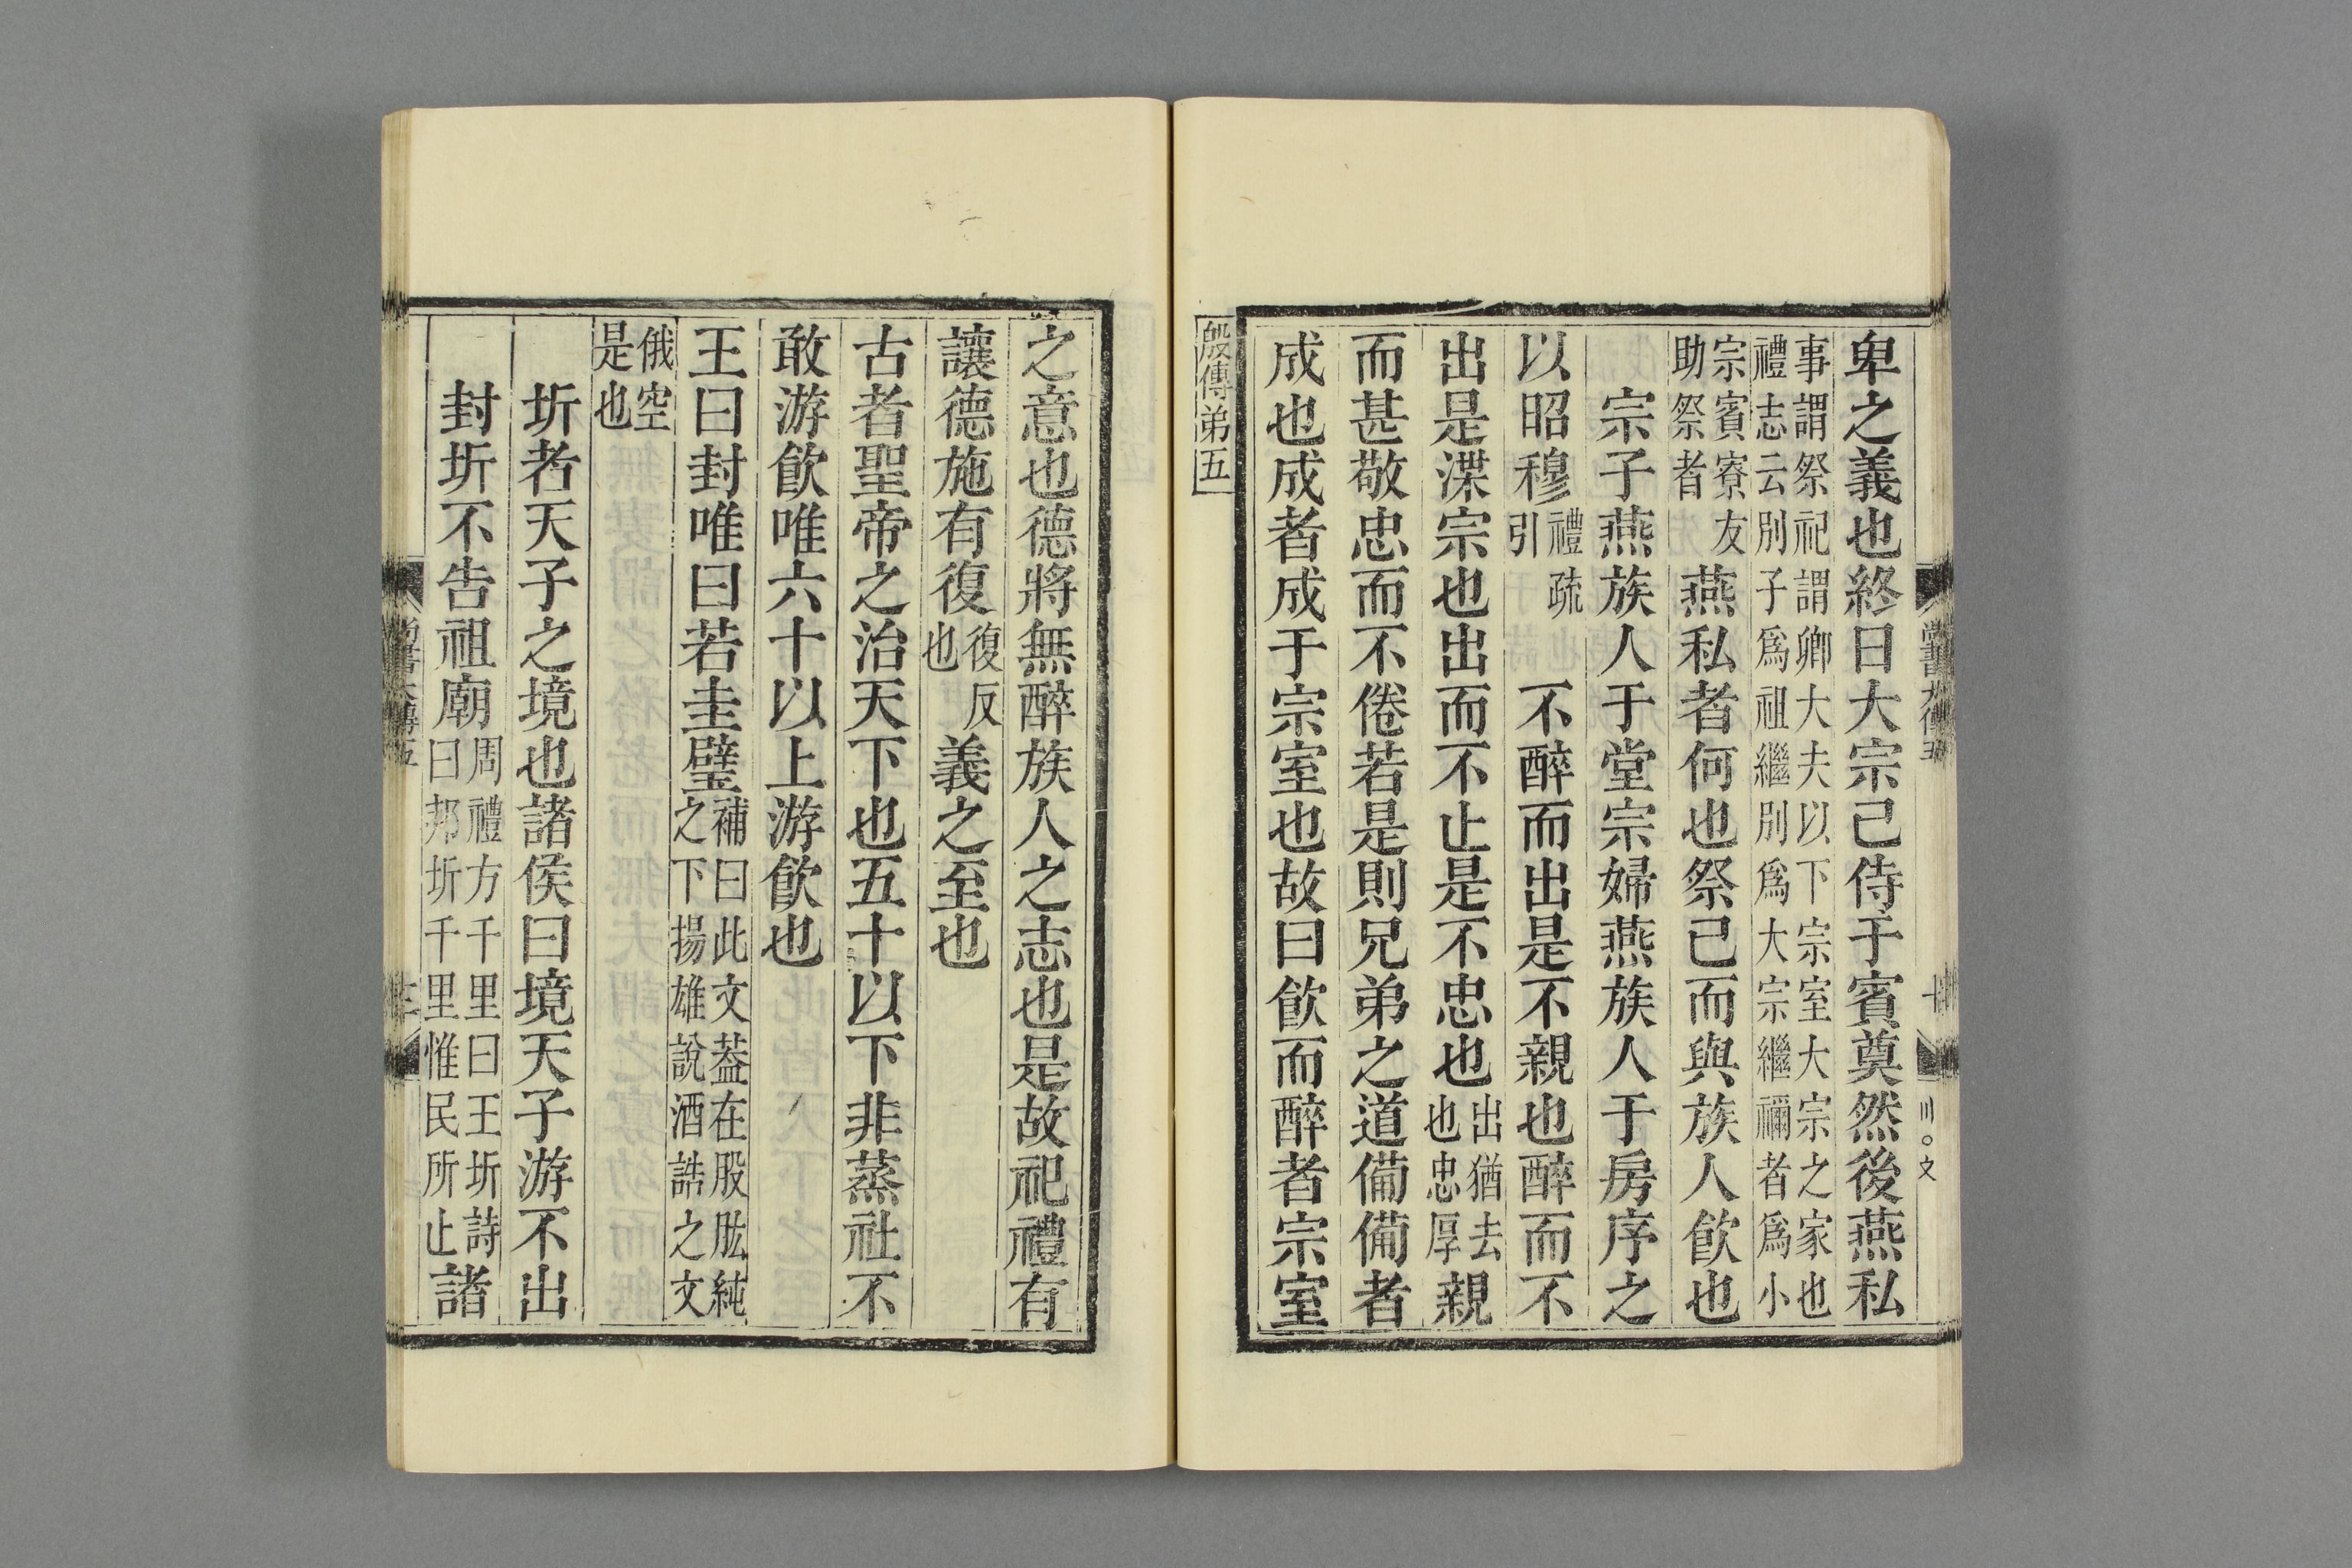 卑之義也終日大宗已侍于賓奠然後燕私
事謂祭祀謂卿大夫以下宗室大宗之家也
禮志云別子爲祖繼別爲大宗繼禰者爲小
宗賓寮友
助祭者
燕私者何也祭已而與族人飮也
宗子燕族人于堂宗婦燕族人于房序之
以昭穆
禮疏
引
不醉而出是不親也醉而不
出是渫宗也出而不止是不忠也
出猶去
也忠厚
親
而甚敬忠而不倦若是則兄弟之道備備者
成也成者成于宗室也故曰飮而醉者宗室
殷傳弟五
之意也德將無醉族人之志也是故祀禮有
讓德施有復
復反
也
義之至也
古者聖帝之治天下也五十以下非蒸社不
敢游飮唯六十以上游飮也
王曰封唯曰若圭璧
補曰此文葢在股肱純
之下揚雄說酒誥之文
俄空
是也
圻者天子之境也諸侯曰境天子游不出
封圻不告祖廟
周禮方千里曰王圻詩
曰邦圻千里惟民所止
諸